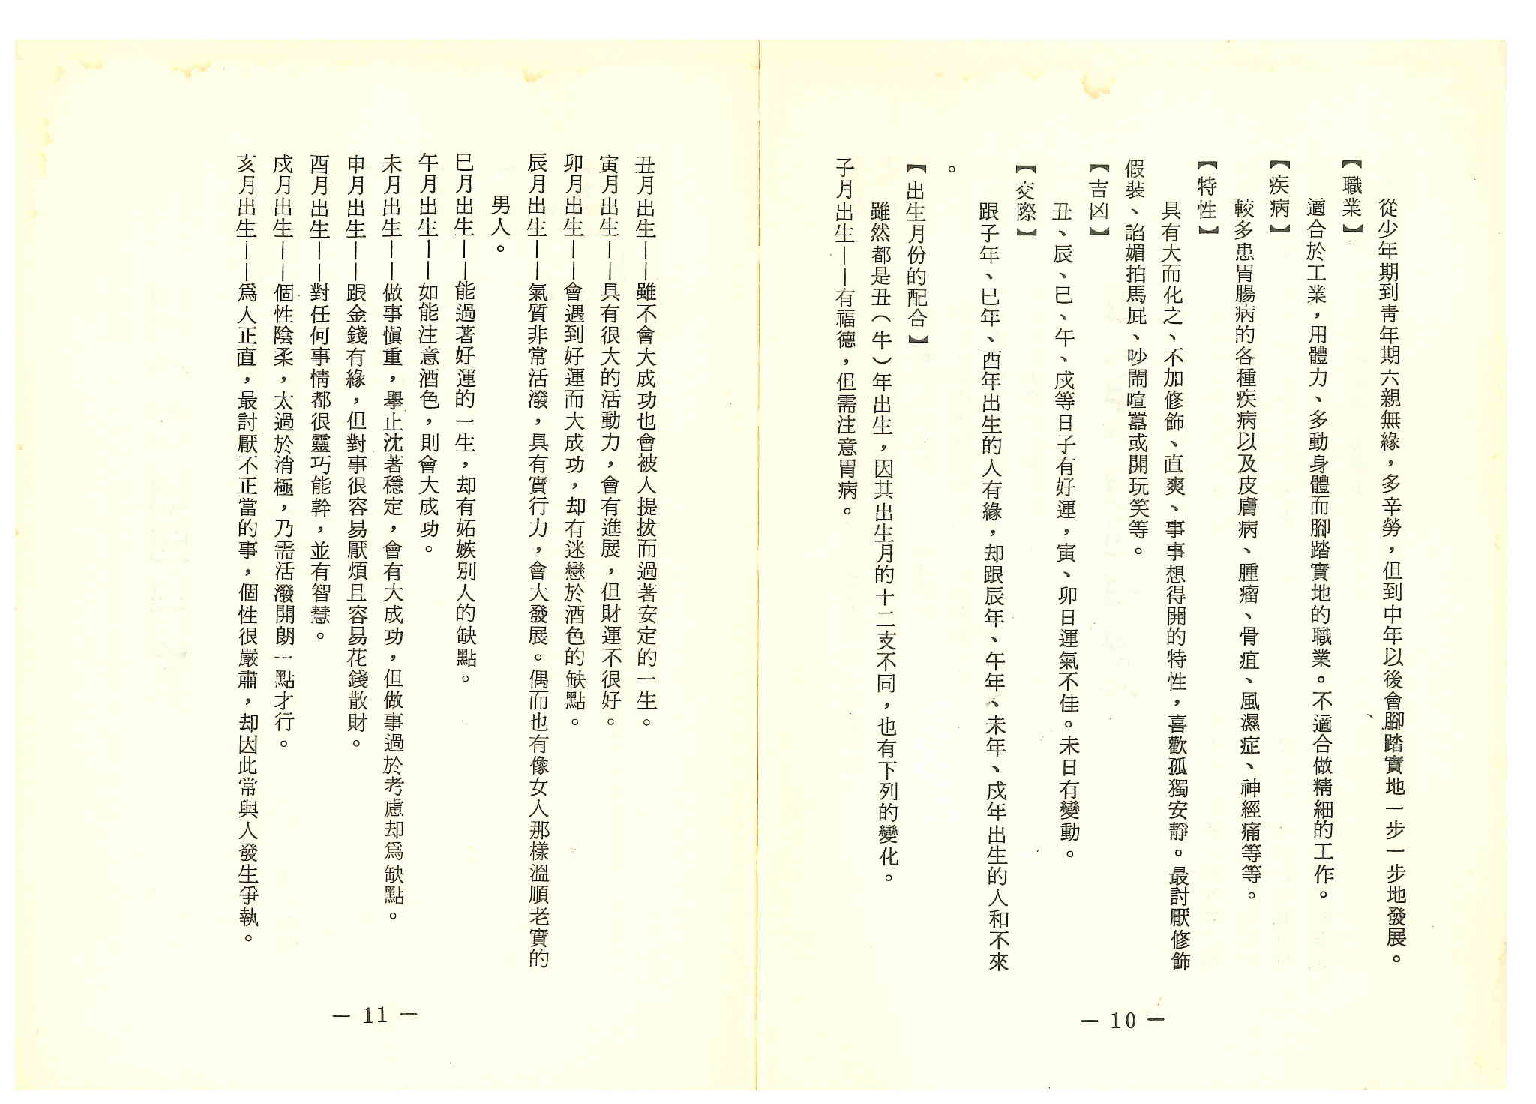 從少年期到青年期六親無緣，多辛勞，但到中年以後會腳踏實地一步一步地發展。
【職業】
適合於工業，用體力、多動身體而腳踏實地的職業。不適合做精細的工作。
【疾病】
較多患胃腸病的各種疾病以及皮膚病、腫瘤、骨疽、風濕症、神經痛等等。
【特性】
具有大而化之、不加修飾、直爽、事事想得開的特性，喜歡孤獨安靜。最討厭修飾
假裝、諂媚拍馬屁、吵鬧喧囂或開玩笑等。
【吉凶】
丑、辰、巳、午、戌等日子有好運，寅、卯日運氣不佳。未日有變動。
【交際】
跟子年、巳年、酉年出生的人有緣，却跟辰年、午年、未年、戌年出生的人和不來
。
【出生月份的配合】
雖然都是丑（牛）年出生，因其出生月的十二支不同，也有下列的變化。
子月出生——有福德，但需注意胃病。
— 10 —
丑月出生——雖不會大成功也會被人提拔而過著安定的一生。
寅月出生——具有很大的活動力，會有進展，但財運不很好。
卯月出生——會遇到好運而大成功，却有迷戀於酒色的缺點。
辰月出生——氣質非常活潑，具有實行力，會大發展。偶而也有像女人那樣溫順老實的
男人。
巳月出生——能過著好運的一生，却有妬嫉別人的缺點。
午月出生——如能注意酒色，則會大成功。
未月出生——做事慎重，舉止沈著穩定，會有大成功，但做事過於考慮却爲缺點。
申月出生——跟金錢有緣，但對事很容易厭煩且容易花錢散財。
酉月出生——對任何事情都很靈巧能幹，並有智慧。
戌月出生——個性陰柔，太過於消極，乃需活潑開朗一點才行。
亥月出生——爲人正直，最討厭不正當的事，個性很嚴肅，却因此常與人發生爭執。
— 11 —